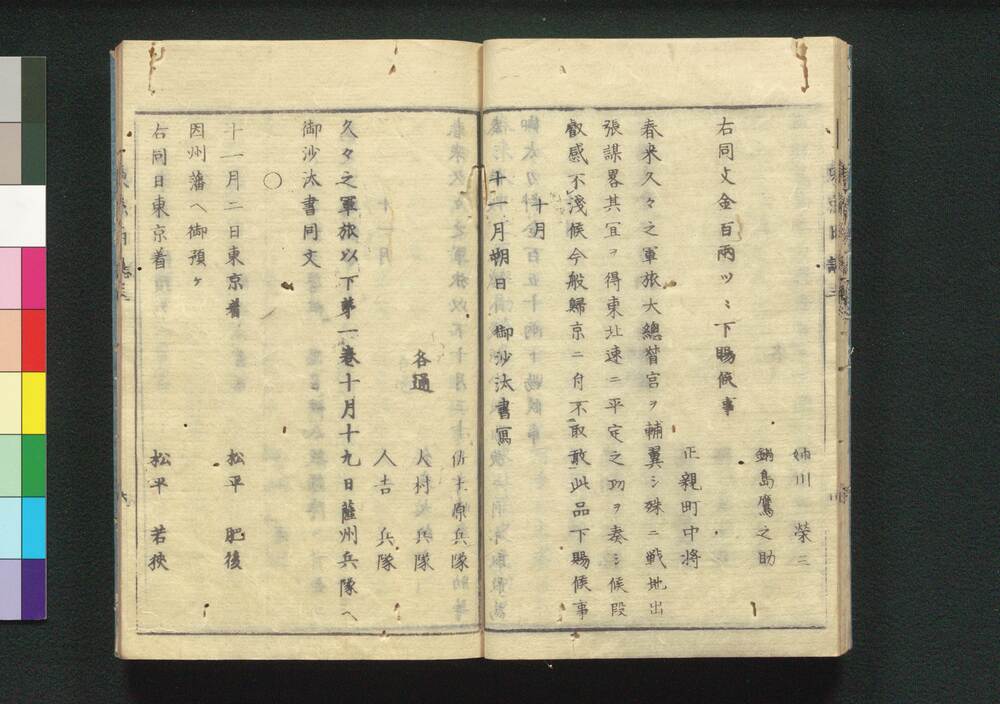 姉川 榮三
鍋島鷹之助
右同文金百兩ツヽ下賜候事
正親町中将
春来久々之軍旅大總督宮ヲ輔翼シ殊ニ戦地出
張謀畧其宜ヲ得東北速ニ平定之功ヲ奏シ候段
叡感不淺候今般歸京ニ付不取敢此品下賜候事
十月
十一月朔日 御沙汰書寫
佐土原兵隊
各通 大村兵隊
人吉 兵隊
久々之軍旅以下第一巻十月十九日薩州兵隊へ
御沙汰書同文
○
十一月二日東京着 松平 肥後
因州藩へ御預ケ
右同日東京着 松平 若狹